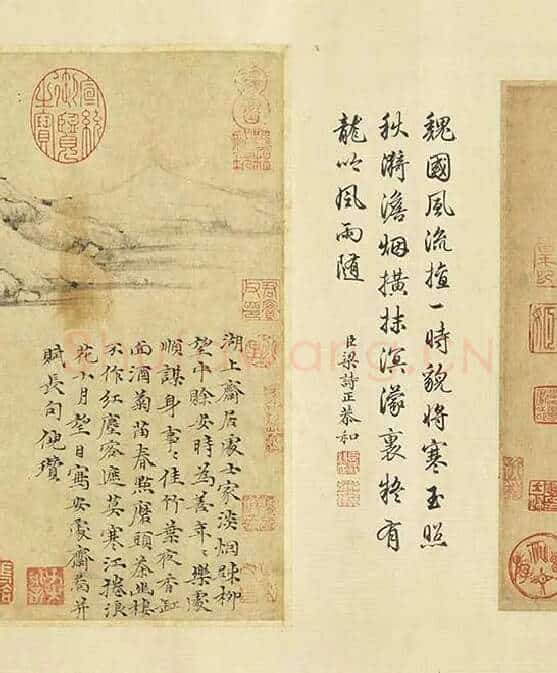 魏國風流擅一時貌將寒玉照
秋漪澹烟橫抹溟濛裏疑有
龍吟風雨隨
臣梁詩正恭和
湖上齋居處士家淡烟疎柳
望中賒安時為善年〻樂處
順謀身事〻佳竹葉夜香缸
面酒菊苗春點磨頭茶幽棲
不作紅塵客遮莫寒江捲浪
花十月望日寫安處齋啚并
賦長句倪瓚
宣統御覽之寶
Shufawang.CN